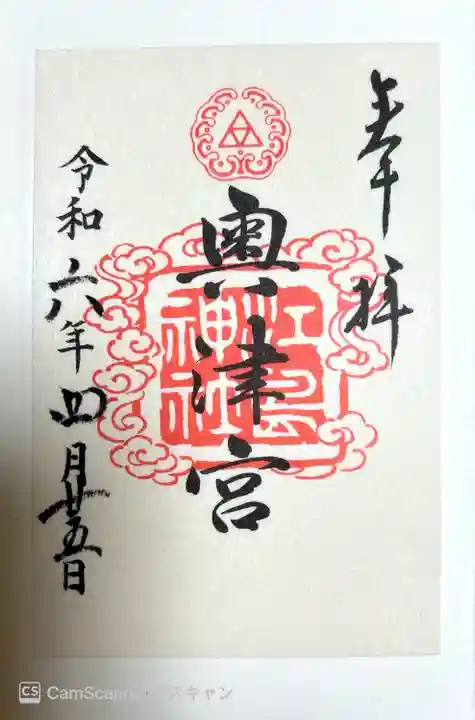 奉拝
奥津宮
江島神社
令和六年四月廿五日
CS CamScanner
スキャン